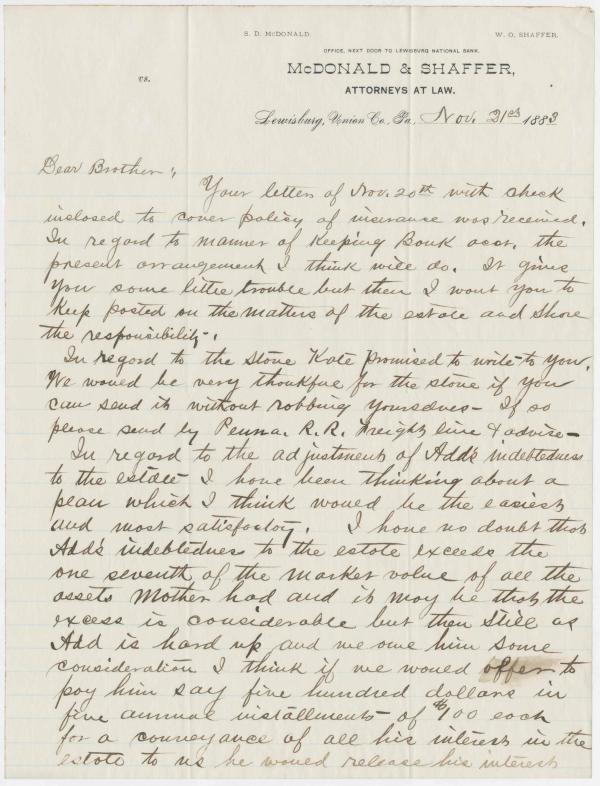 S. D. McDONALD.
W. O. SHAFFER.
OFFICE, NEXT DOOR TO LEWISBURG NATIONAL BANK.
vs.
McDONALD & SHAFFER,
ATTORNEYS AT LAW.
Lewisburg, Union Co., Pa., Nov. 21st 1883
Dear Brother:,
Your letter of Nov. 20th with check
inclosed to cover policy of insurance was received.
In regard to manner of Keeping Bank acct. the
present arrangement I think will do. It gives
you some little trouble but then I want you to
Keep posted on the matters of the estate and share
the responsibility.
In regard to the stove Kate promised to write to you.
We would be very thankful for the stove if you
can send it without robbing yourselves - If so
please send by Penna. R.R. Freight line & advise -
In regard to the adjustment of Add's indebtedness
to the estate I have been thinking about a
plan which I think would be the easiest
and most satisfactory. I have no doubt that
Add's indebtedness to the estate exceeds the
one seventh of the market value of all the
assets Mother had and it may be that the
excess is considerable but then still as
Add is hard up and we owe him some
consideration I think if we would offer to
pay him say five hundred dollars in
five annual installments of $100 each
for a conveyance of all his interest in the
estate to us he would release his interest